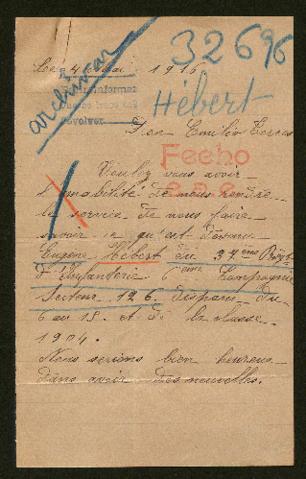 32696
archivar
Le 4 Mai 1916
Para informar
devolver
Hébert
Don Emilio
Fecho
Voulez vous avoir
l'amabilité de nous rendre
le service de nous faire
savoir ce qu'est devenu
Eugène Hébert du 37ème Régt
d'Infanterie 6eme Compagnie
Secteur 126 disparu du
6 au 15. et de la classe
1904.
Nous serions bien heureux
d'en avoir des nouvelles.